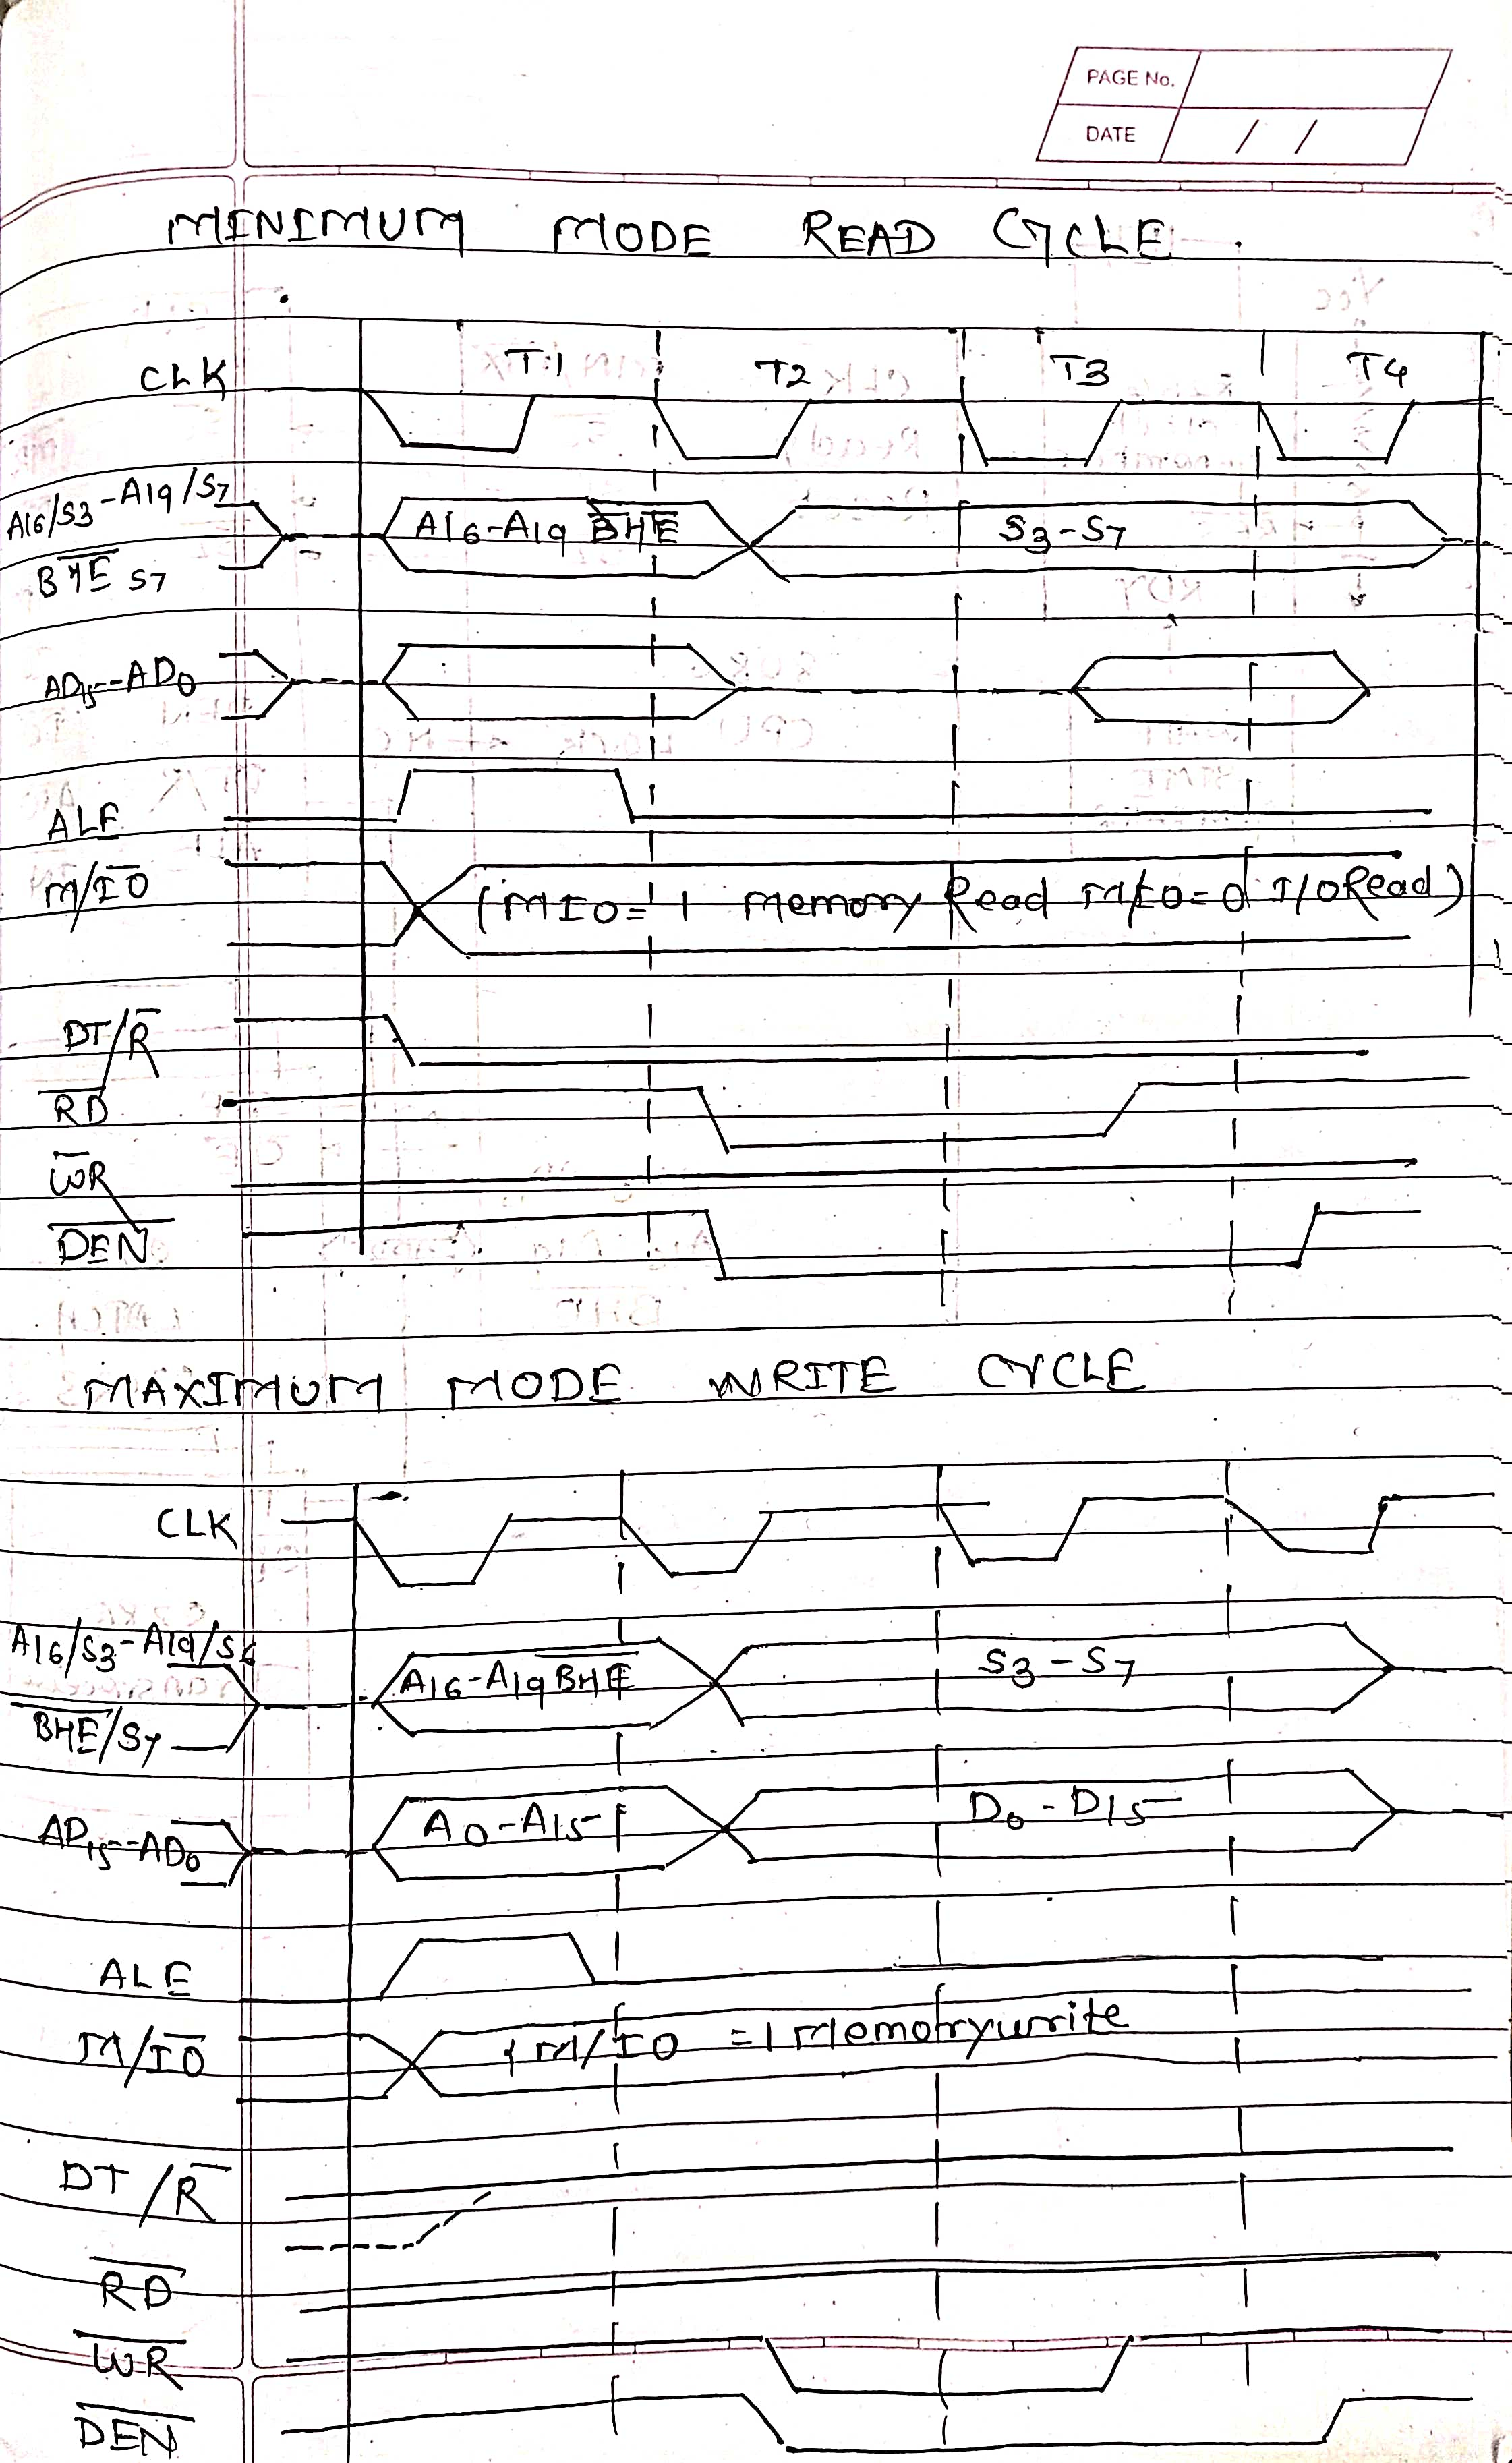 PAGE No.
DATE / /
MINIMUM MODE READ CYCLE
CLK T1 T2 T3 T4
A16/S3-A19/S7
A16-A19 B̅H̅E̅ S3-S7
B̅H̅E̅ S7
AD15--AD0
ALE
M/I̅O̅
(MIO=1 Memory Read M/IO=0 I/O Read)
DT/R̅
R̅D̅
W̅R̅
D̅E̅N̅
MAXIMUM MODE WRITE CYCLE
CLK
A16/S3-A19/S6
A16-A19 B̅H̅E̅ S3-S7
B̅H̅E̅/S7
AD15--AD0 A0-A15 D0-D15
ALE
M/I̅O̅ (M/IO =1 Memotrywrite
DT/R̅
R̅D̅
W̅R̅
D̅E̅N̅